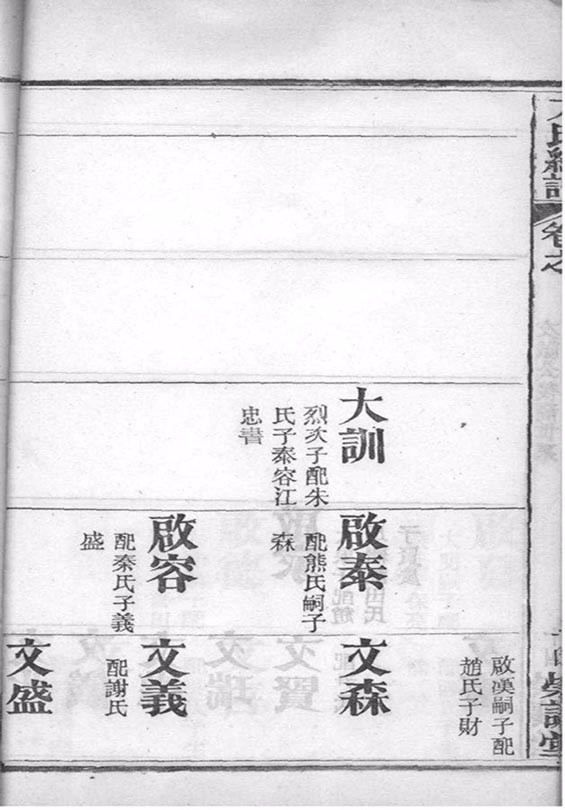 卷之
大訓
烈次子配朱
氏子泰容江
忠書
啟泰
配熊氏嗣子
森
啟容
配秦氏子義
盛
啟漢嗣子配
趙氏子財
文森
文義
配謝氏
文盛